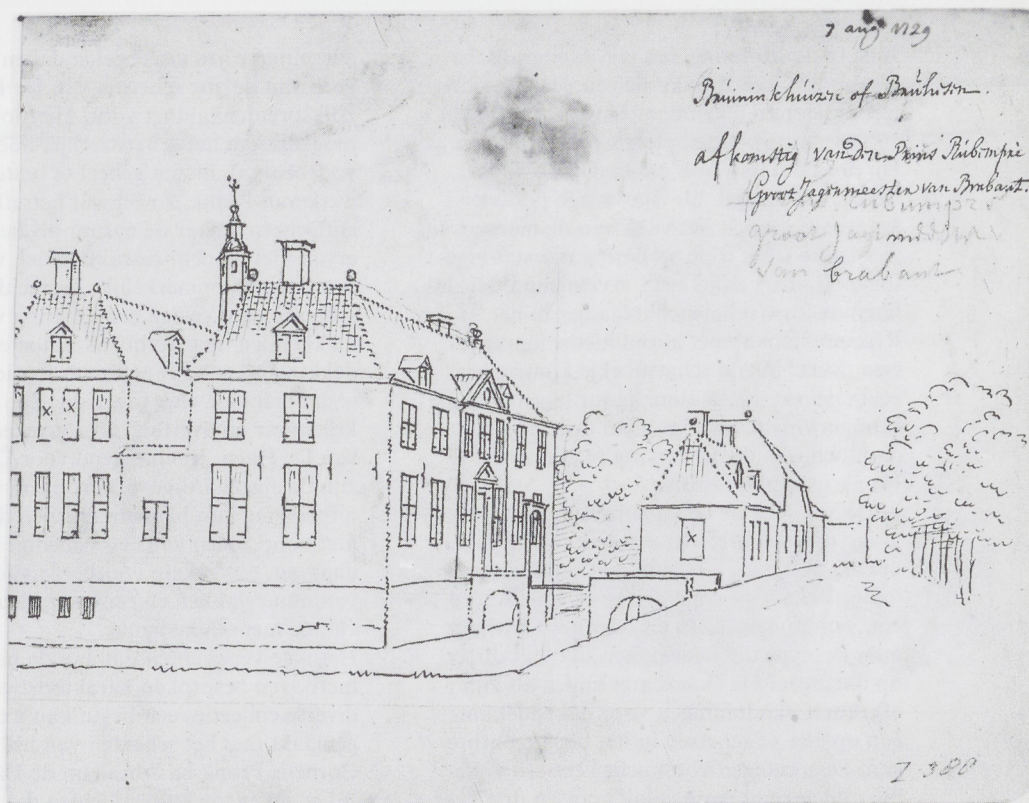 7 aug 1729
Bruninkhuizen of Bruhesen.
afkomstig van den Prins Rubempré
Groot Jagermeester van Brabant.
Rubempré
groot Jagtmeester
van brabant
I 388